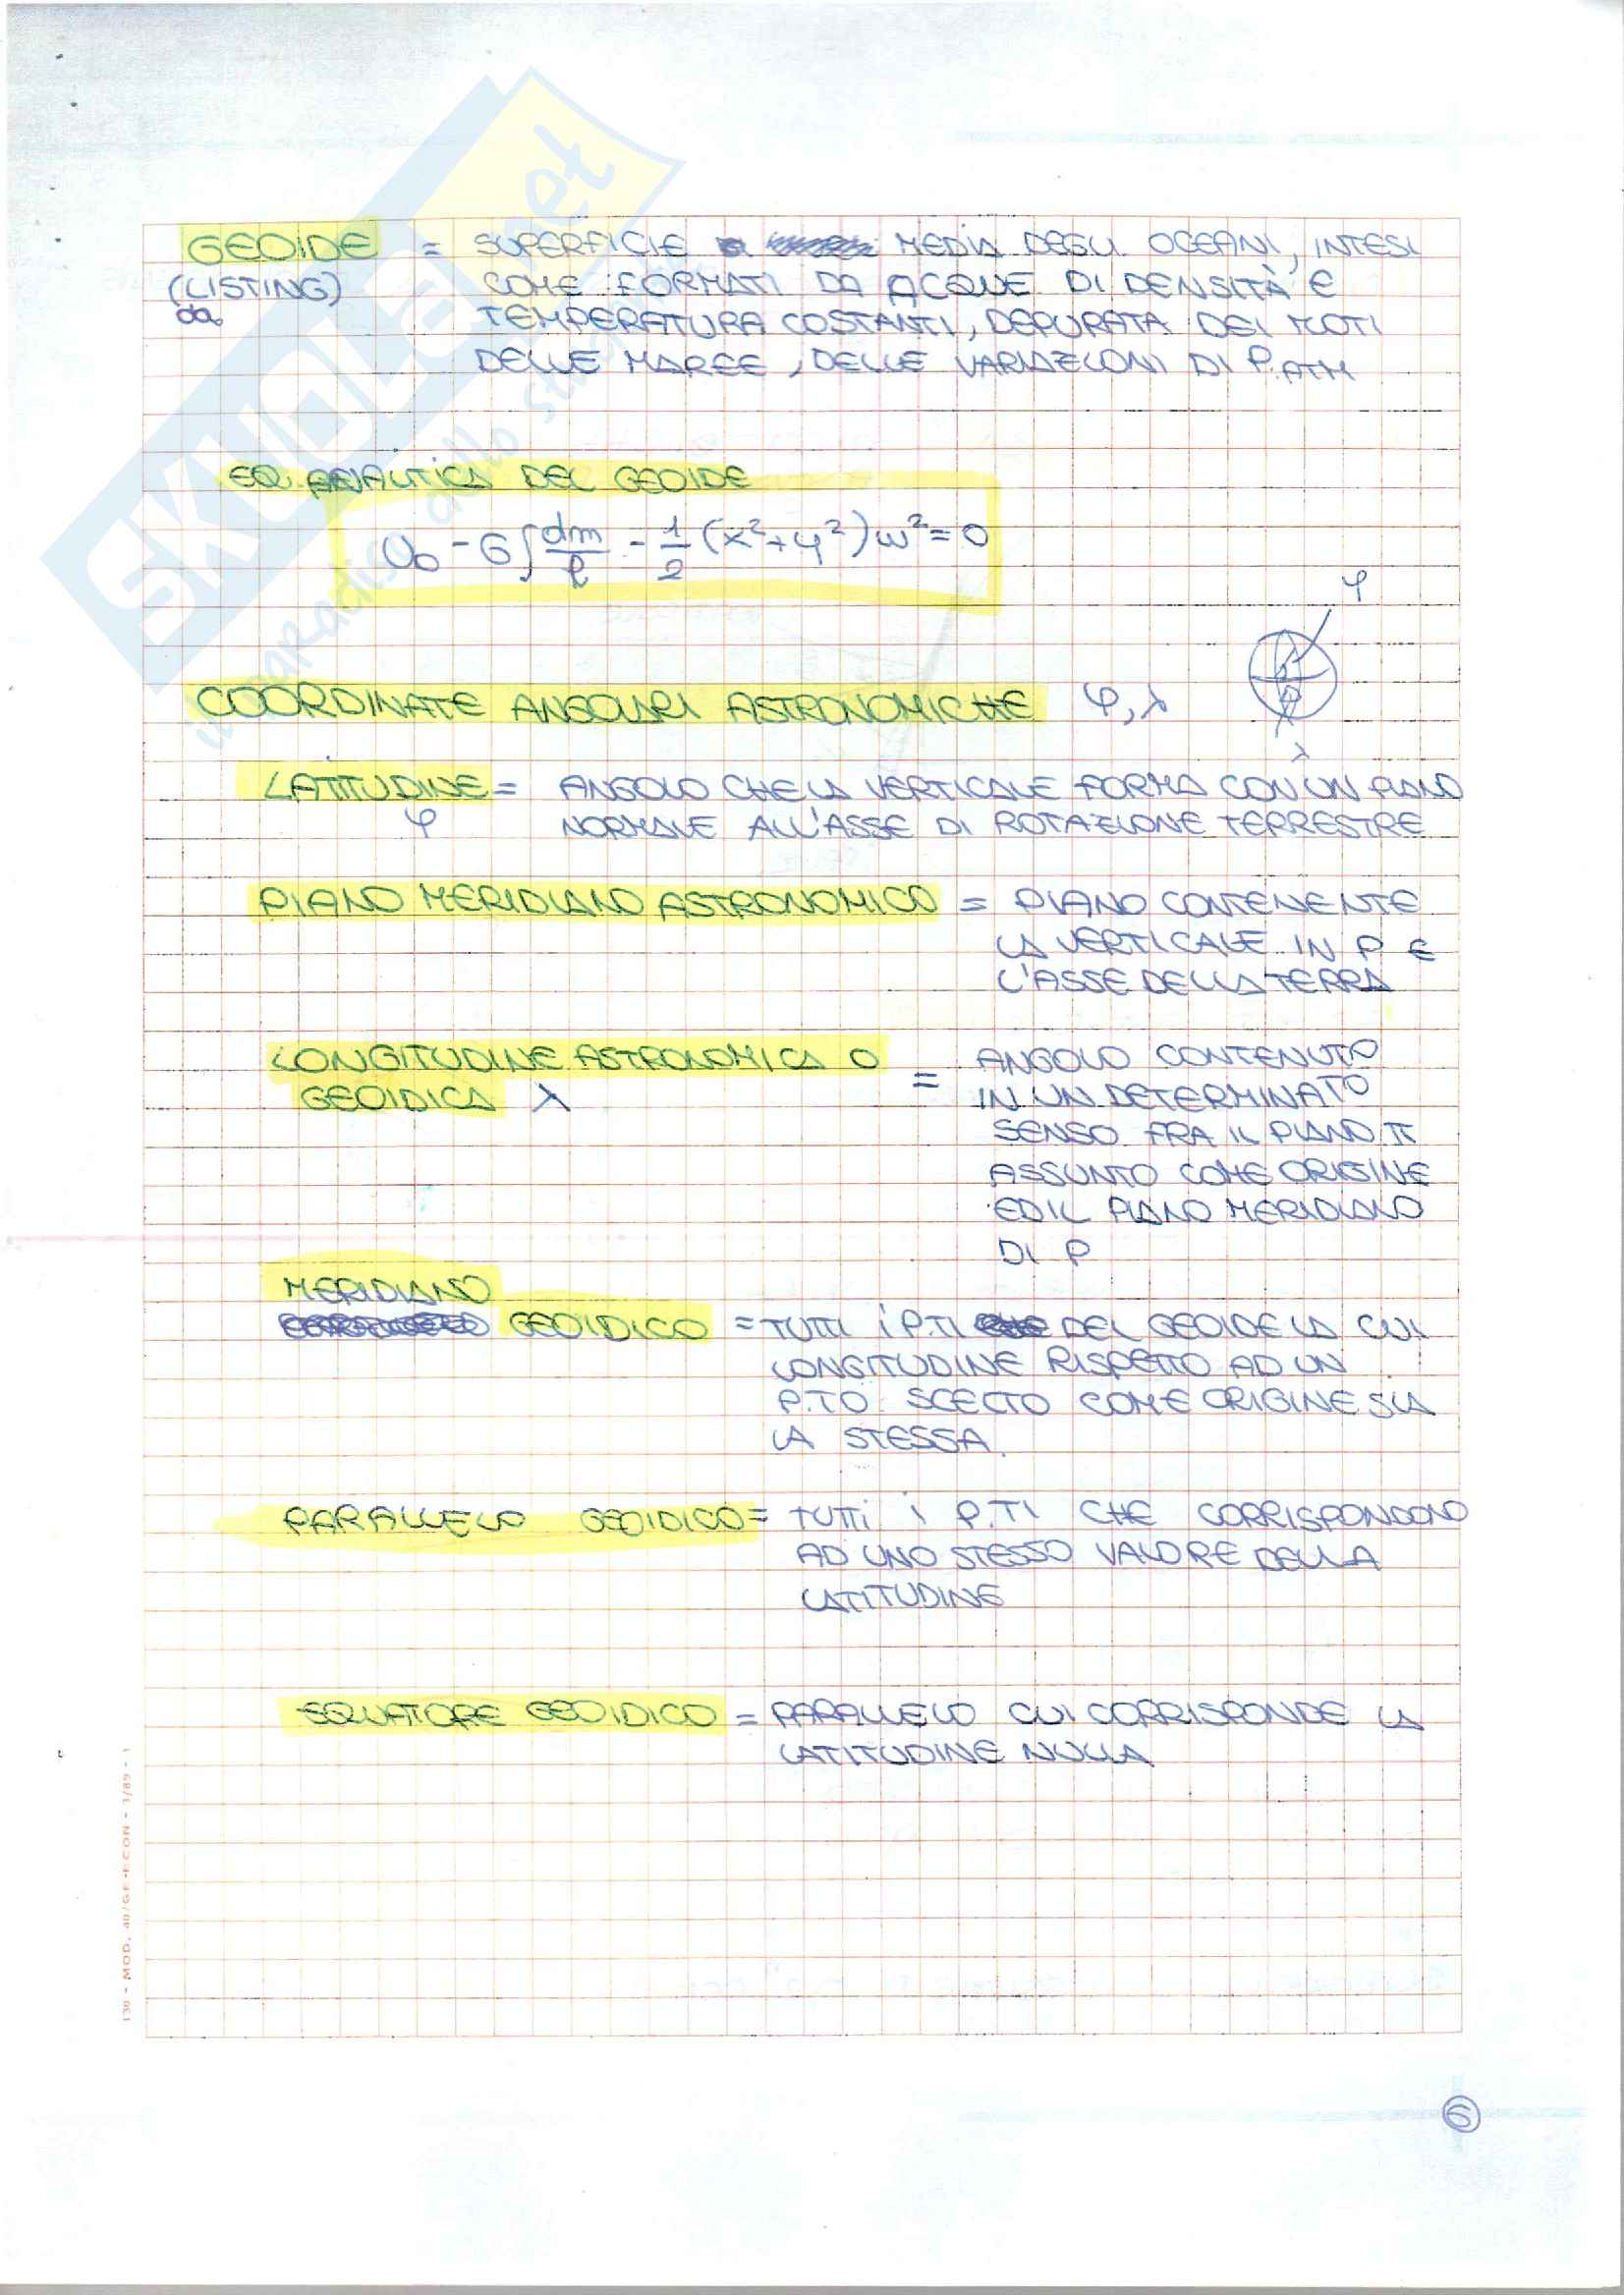 GEOIDE = SUPERFICIE MEDIA DEGLI OCEANI, INTESI
(LISTING) COME FORMATI DA ACQUE DI DENSITÀ E
da TEMPERATURA COSTANTI, DEPURATA DEI MOTI
DELLE MAREE, DELLE VARIAZIONI DI P.ATM
EQ. ANALITICA DEL GEOIDE
U₀ - G∫dm/ℓ - 1/2 (x²+y²)ω² = 0
φ
COORDINATE ANGOLARI ASTRONOMICHE φ, λ
λ
LATITUDINE = ANGOLO CHE LA VERTICALE FORMA CON UN PIANO
φ NORMALE ALL'ASSE DI ROTAZIONE TERRESTRE
PIANO MERIDIANO ASTRONOMICO = PIANO CONTENENTE
LA VERTICALE IN P E
L'ASSE DELLA TERRA
LONGITUDINE ASTRONOMICA O = ANGOLO CONTENUTO
GEOIDICA λ IN UN DETERMINATO
SENSO FRA IL PIANO π
ASSUNTO COME ORIGINE
ED IL PIANO MERIDIANO
DI P
MERIDIANO
GEOIDICO = TUTTI i P.TI DEL GEOIDE LA CUI
LONGITUDINE RISPETTO AD UN
P.TO SCELTO COME ORIGINE SIA
LA STESSA.
PARALLELO GEOIDICO = TUTTI i P.TI CHE CORRISPONDONO
AD UNO STESSO VALORE DELLA
LATITUDINE
EQUATORE GEOIDICO = PARALLELO CUI CORRISPONDE LA
LATITUDINE NULLA
130 - MOD. 40/GE·ECON - 3/89 - 1
6
SKUOLA.net
il paradiso dello studente